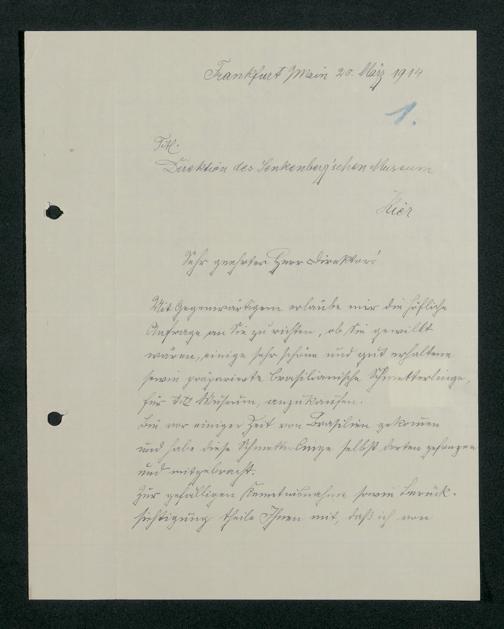 Frankfurt Main 20. März 1914
1.
Tit.
Direktion des Senkenberg'schen Museum
Hier
Sehr geehrter Herr Direktor!
Mit Gegenwärtigem erlaube mir die höfliche
Anfrage an Sie zu richten, ob Sie gewillt
wären, einige sehr schöne und gut erhaltene
sowie präparierte brasilianische Schmetterlinge,
für Ihr Museum, anzukaufen.
Bin vor einiger Zeit von Brasilien gekommen
und habe diese Schmetterlinge selbst dorten gefangen
und mitgebracht.
Zur gefälligen Kenntnisnahme sowie Berück-
sichtigung theile Ihnen mit, daß ich von